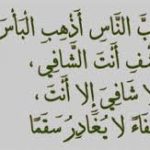 بَّ النَّاسِ أَذْهِبِ الْبَأْسَ
شْفِ أَنْتَ الشَّافِي،
لا شَافِيَ إِلا أَنْتَ ،
فَاءً لا يُغَادِرُ سَقَمًا